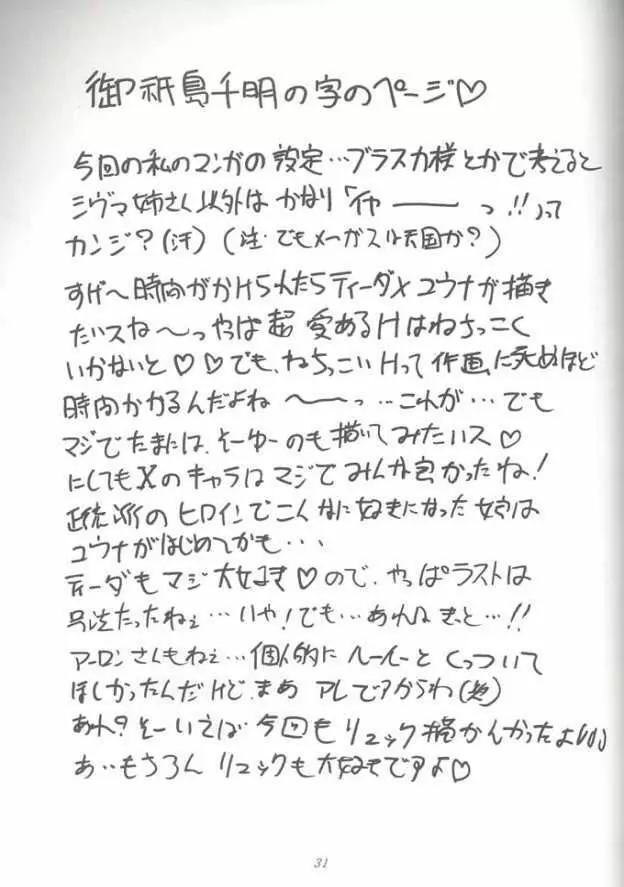 御祇島千明の字のページ♡
今回の私のマンガの設定…ブラスカ様とかで考えると
シヴァ姉さん以外はかなり「イヤーーっ!!」って
カンジ?(汗)(注・でもメーガスは天国か?)
すげ〜時間がかけられたらティーダ×ユウナが描き
たいスね〜っ やっぱ超愛あるHはねちっこく
いかないと♡♡でも、ねちっこいHって作画に死ぬほど
時間かかるんだよね〜ーっ…これが…でも
マジでたまには、そーゆーのも描いてみたいス♡
にしてもXのキャラはマジでみんな良かったね!
正統派のヒロインでこんなに好きになった娘は
ユウナがはじめてかも・・・
ティーダもマジ大好き♡ので、やっぱラストは
号泣だったねぇ…いや!でも…あれはきっと…!!
アーロンさんもねぇ…個人的にルールーとくっついて
ほしかったんだけど、まあ アレですからね
あれ?そーいえば今回もリュック描かんかったよ
あ・・もちろんリュックも大好きですよ♡
31